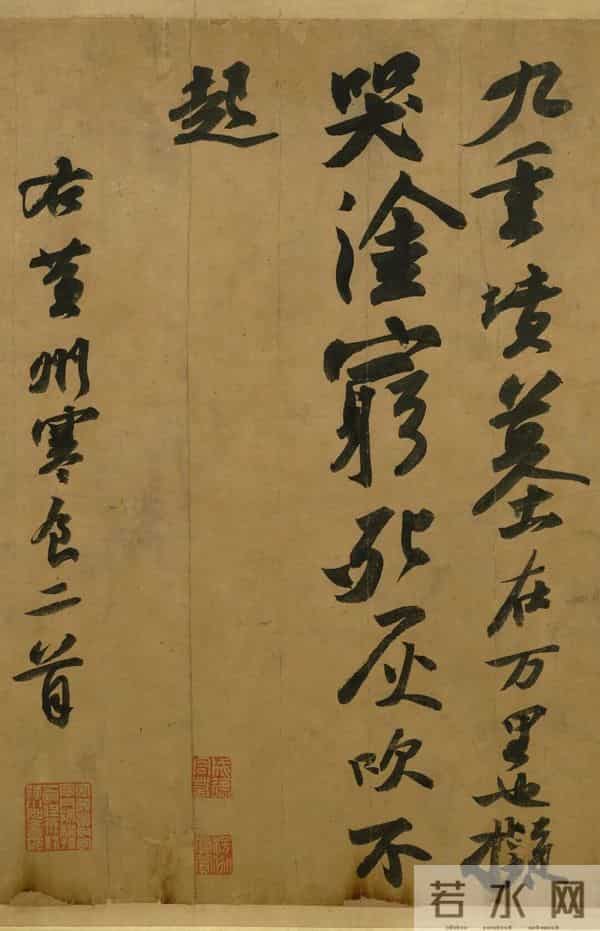 九重墳墓在万里也擬
哭塗窮死灰吹不
起
右黃州寒食二首
若水网